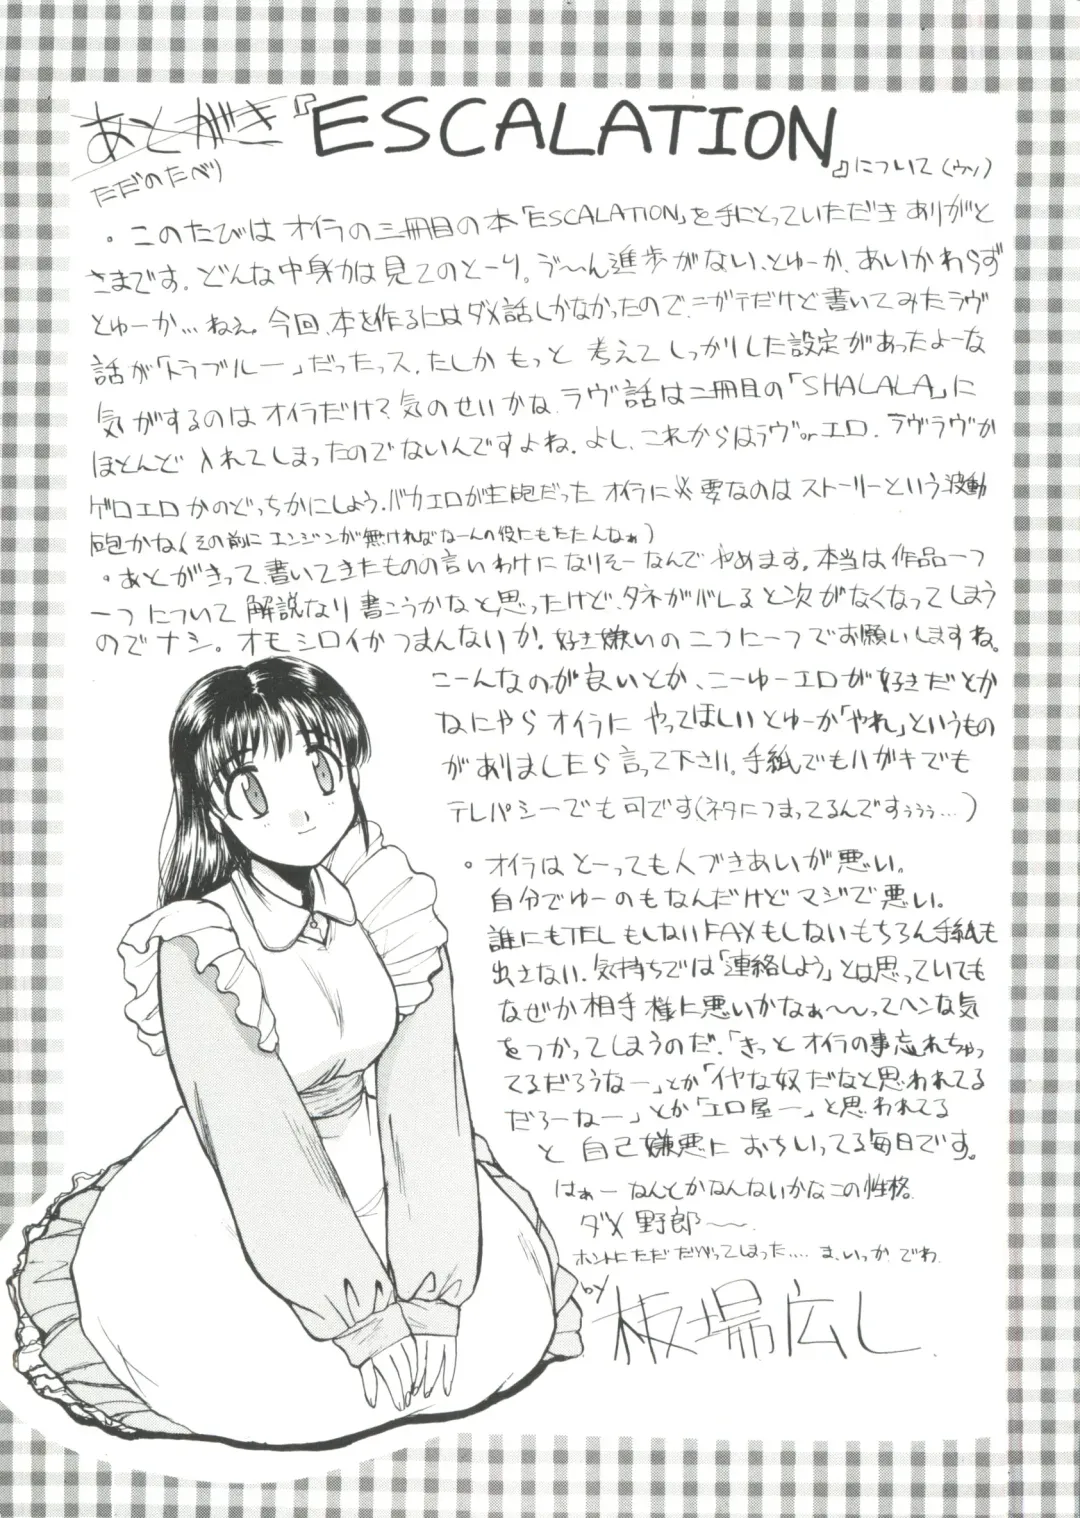 あとがき『ESCALATION』について(ウソ)
ただのたべり
・このたびは オイラの三冊目の本「ESCALATION」を手にとっていただき ありがと
さまです。どんな中身かは見てのとーり。ゔ〜ん進歩がない、とゅーか、あいかわらず
とゅーか…ねぇ。今回、本を作るにはダメ話しかなかったので、ニガテだけど書いてみたラヴ
話が「トラブルー」だったっス。たしか もっと 考えてしっかりした設定があったよーな
気がするのはオイラだけ?気のせいかな。ラヴ話は二冊目の「SHALALA」に
ほとんど 入れてしまったのでないんですよね。よし、これからはラヴorエロ。ラヴラヴか
ゲロエロかのどっちかにしよう。バカエロが主砲だった オイラに必要なのはストーリーという波動
砲かな(その前にエンジンが無ければなーんの役にもたたんなぁ)
・あとがきって、書いてきたものの言いわけになりそーなんで やめます。本当は作品一つ
一つについて 解説なり書こうかなと思ったけど、タネがバレると次がなくなってしまう
のでナシ。オモシロイかつまんないか、好き嫌いの二つに一つでお願いしますね。
こーんなのが良いとか、こーゆーエロが好きだとか
なにやら オイラに やってほしいとゅーか「やれ」というもの
がありましたら言って下さい。手紙でもハガキでも
テレパシーでも可です(ネタにつまってるんですぅぅぅ…)
・オイラはとーっても人づきあいが悪い。
自分でゆーのもなんだけどマジで悪い。
誰にもTELもしないFAXもしないもちろん手紙も
出さない。気持ちでは「連絡しよう」とは思っていても
なぜか相手様に悪いかなぁ〜〜ってヘンな気
をつかってしまうのだ。「きっとオイラの事忘れちゃっ
てるだろうなー」とか「イヤな奴だなと思われてる
だろーなー」とか「エロ屋ー」と思われてる
と 自己嫌悪におちいってる毎日です。
はぁーなんとかなんないかなこの性格。
ダメ野郎〜〜。
ホントにただ だべってしまった‥‥ ま、いっか。でわ。
by 板場広し